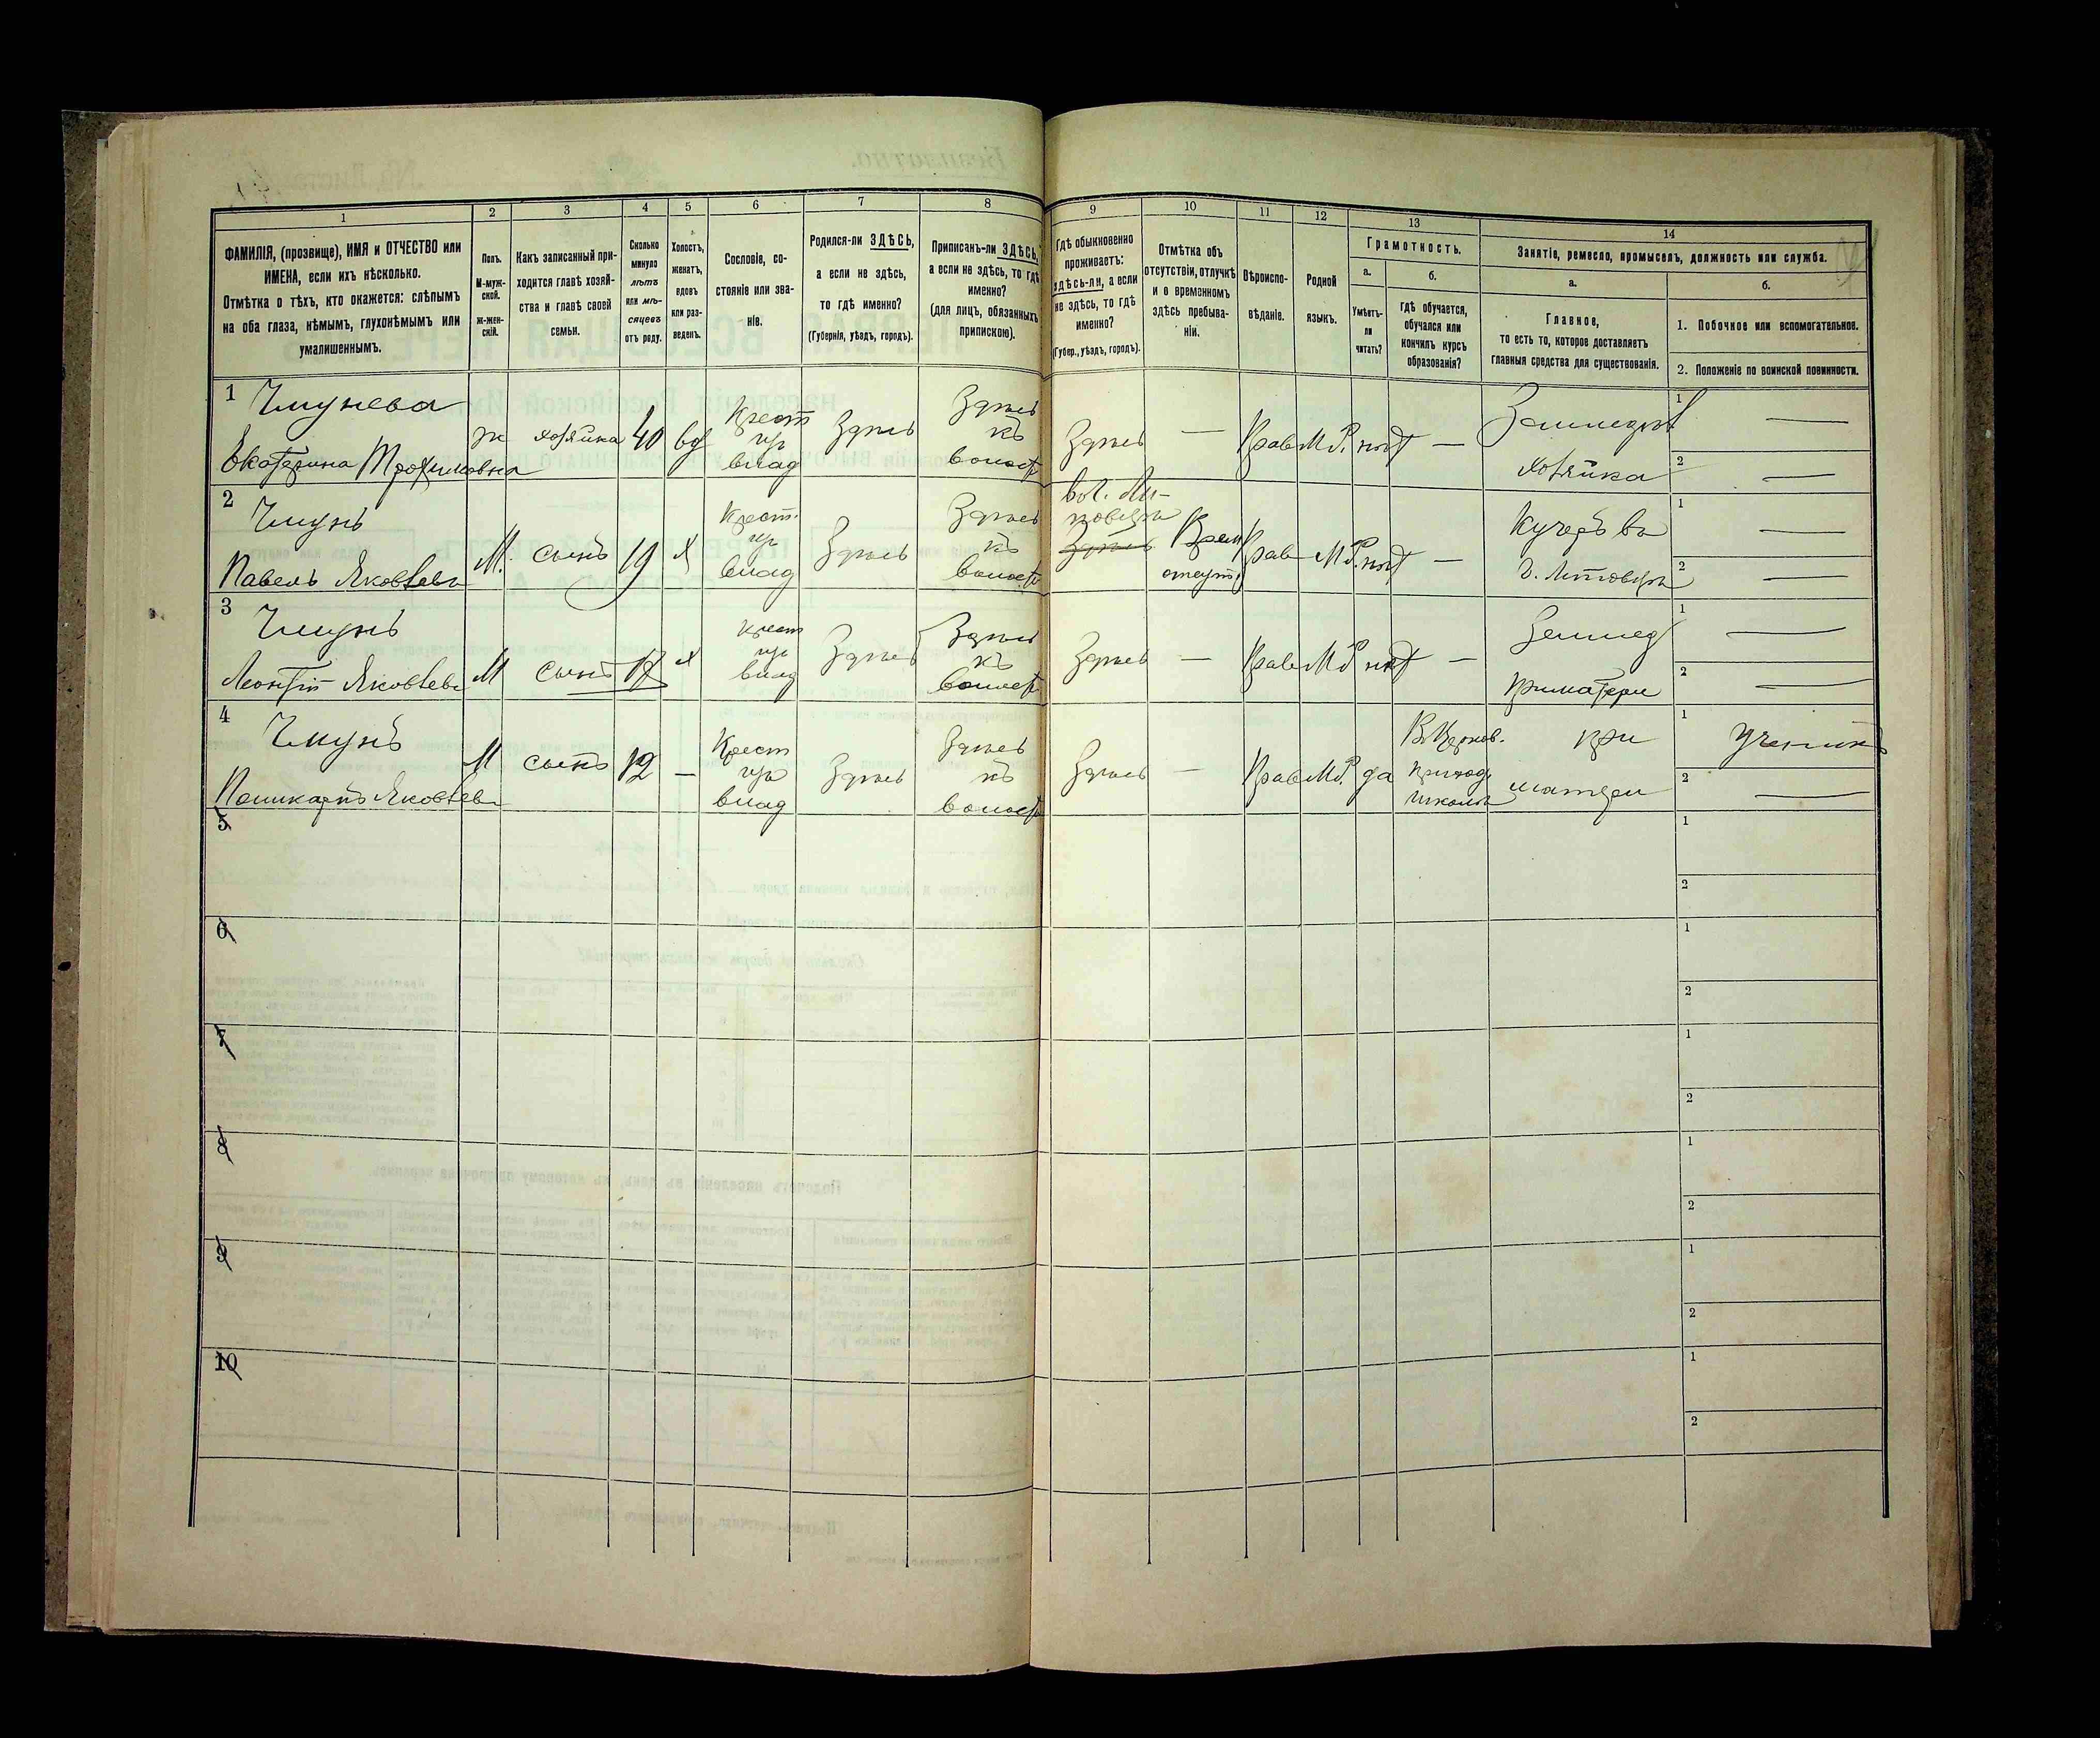 1 2 3 4 5 6 7 8 9 10 11 12 13 14
ФАМИЛІЯ, (прозвище), ИМЯ и ОТЧЕСТВО или
ИМЕНА, если ихъ нѣсколько.
Отмѣтка о тѣхъ, кто окажется: слѣпымъ
на оба глаза, нѣмымъ, глухонѣмымъ или
умалишеннымъ.
Полъ.
М-муж-
ской.
ж-жен-
скій.
Какъ записанный при-
ходится главѣ хозяй-
ства и главѣ своей
семьи.
Сколько
минуло
лѣтъ
или мѣ-
сяцевъ
отъ роду.
Холостъ,
женатъ,
вдовъ
или раз-
веденъ.
Сословіе, со-
стояніе или зва-
ніе.
Родился-ли ЗДѢСЬ,
а если не здѣсь,
то гдѣ именно?
(Губернія, уѣздъ, городъ).
Приписанъ-ли ЗДѢСЬ,
а если не здѣсь, то гдѣ
именно?
(для лицъ, обязанныхъ
припискою).
Гдѣ обыкновенно
проживаетъ:
здѣсь-ли, а если
не здѣсь, то гдѣ
именно?
(Губер., уѣздъ, городъ).
Отмѣтка объ
отсутствіи, отлучкѣ
и о временномъ
здѣсь пребыва-
ніи.
Вѣроиспо-
вѣданіе.
Родной
языкъ.
Грамотность.
а.
Умѣетъ-
ли
читать?
б.
Гдѣ обучается,
обучался или
кончилъ курсъ
образованія?
Занятіе, ремесло, промыселъ, должность или служба.
а.
Главное,
то есть то, которое доставляетъ
главныя средства для существованія.
б.
1. Побочное или вспомогательное.
2. Положеніе по воинской повинности.
1
Екатерина Трофимовна
ж хозяйка 40 вд
Крест
влад
Здѣсь
Здѣсь
къ
волости
Здѣсь — Прав М.Р. нѣт —
хозяйка
1 —
2 —
2
Павелъ Яковлевъ
М. сынъ 19 х
Крест.
влад
Здѣсь
Здѣсь
къ
волости
Здѣсь
Врем
отсут
Прав М.Р. нѣт —
Кучеръ въ
1 —
2 —
3
Леонтій Яковлевъ
М сынъ 17 х
Крест
влад
Здѣсь
Здѣсь
къ
волости
Здѣсь — Прав М.Р. нѣт —
Землед
при матери
1 —
2 —
4
Поликарпъ Яковлевъ
М сынъ 12 —
Крест
влад
Здѣсь
Здѣсь
къ
волости
Здѣсь — Прав М.Р. да
В Церков.
приход
школѣ
при
матери
1 Ученикъ
2 —
5
1
2
6
1
2
7
1
2
8
1
2
9
1
2
10
1
2